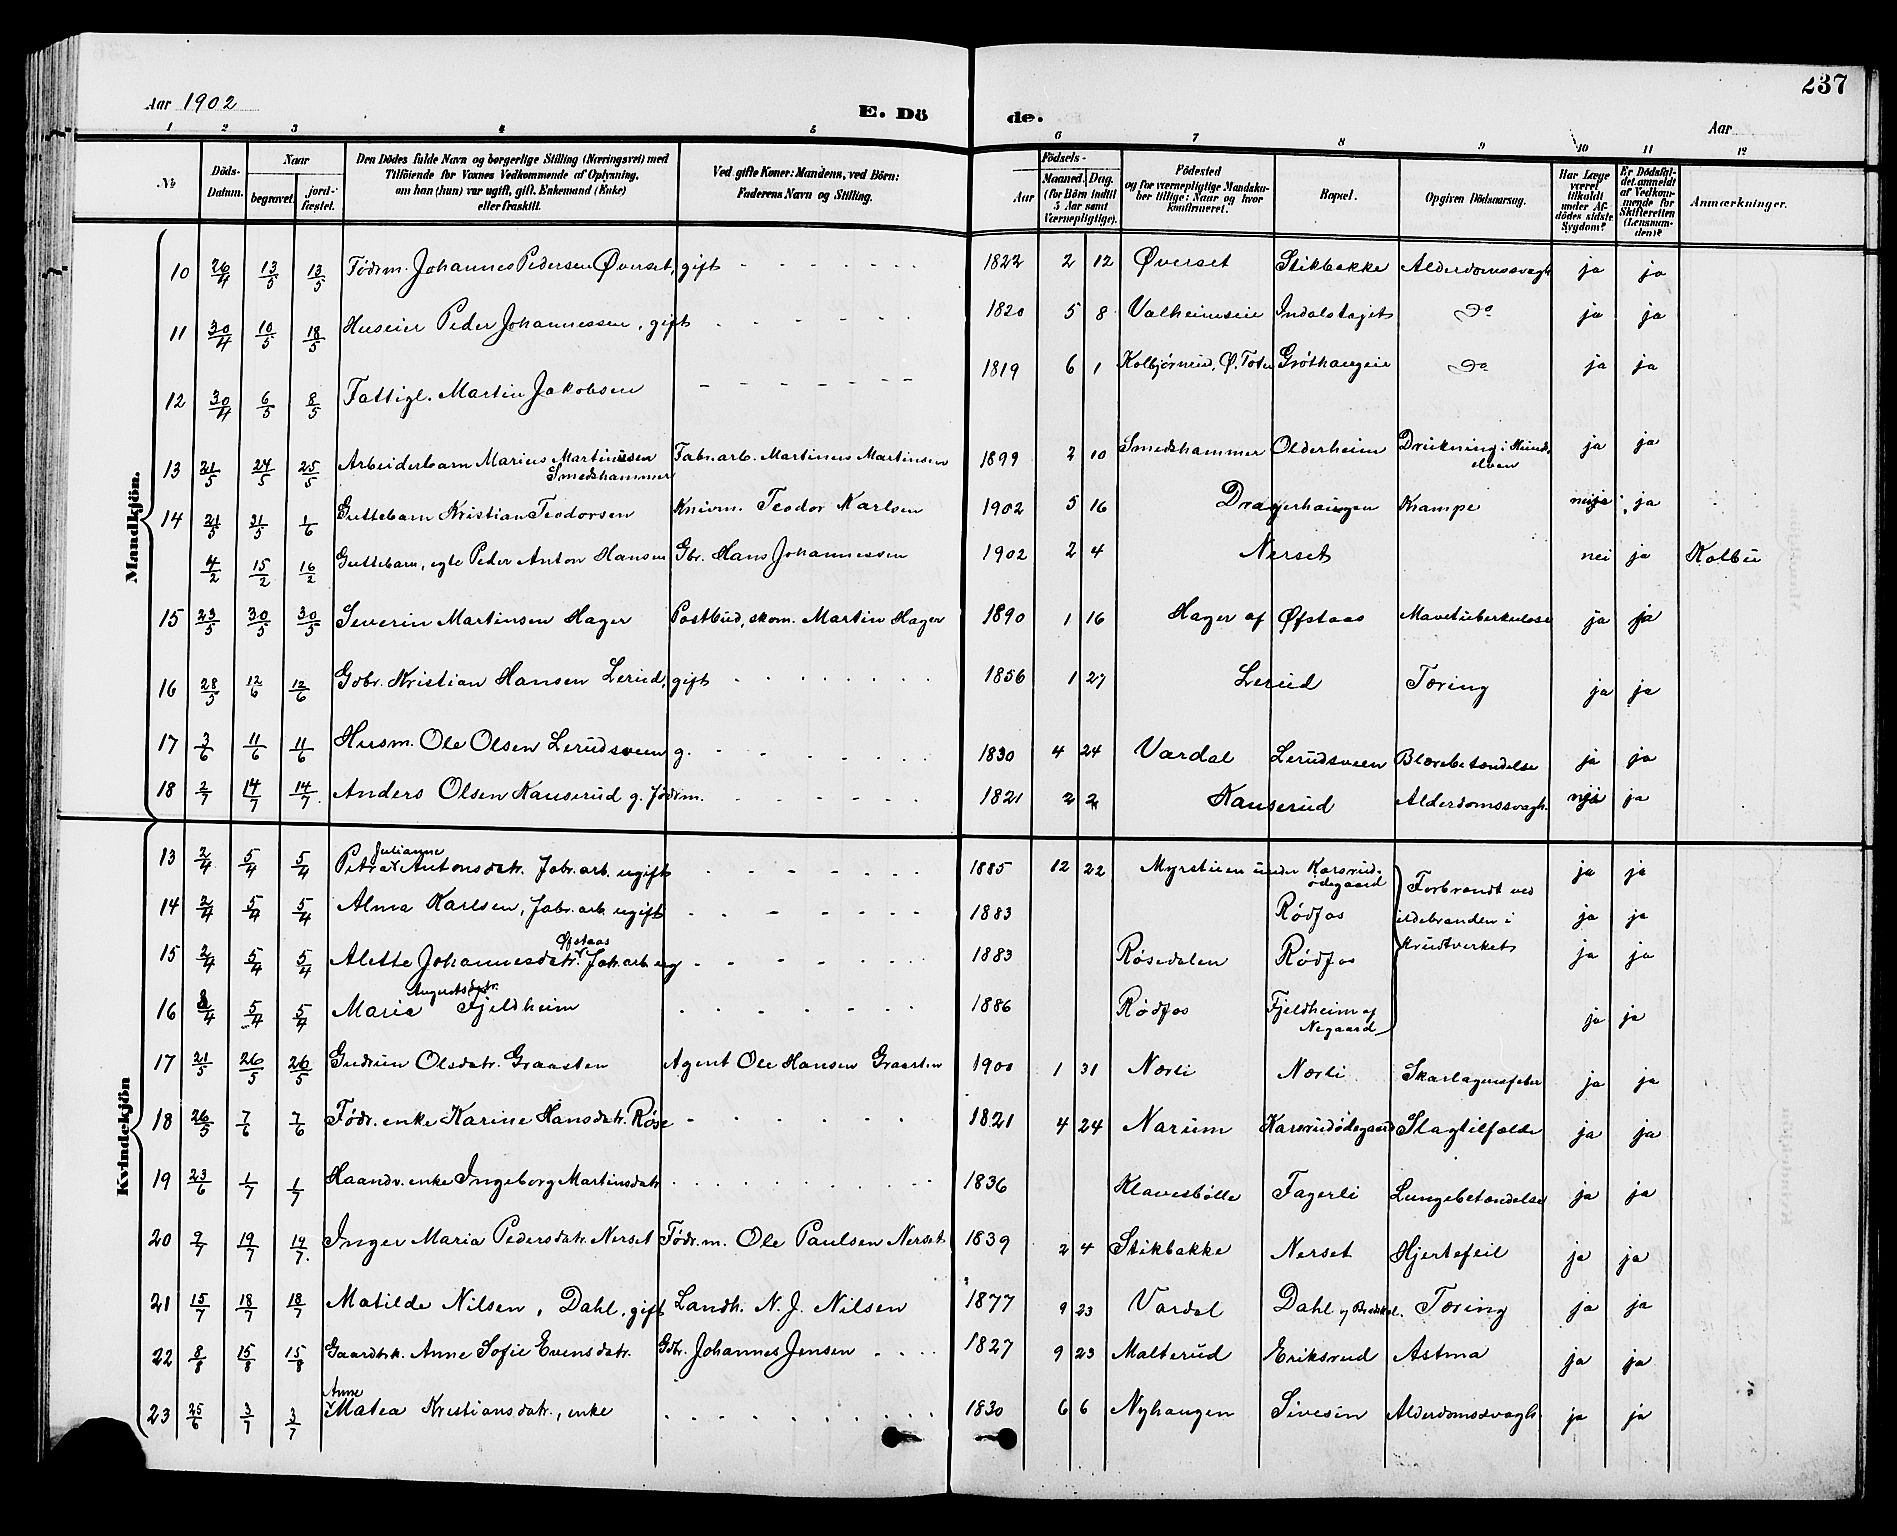 237
Aar 1902
E. Dö
de.
Aar
1 2 3 4 5 6 7 8 9 10 11 12
№
Döds-Datum.
Naar
begravet.
jord-fæstet.
Den Dödes fulde Navn og borgerlige Stilling (Næringsvei) med
Tilföiende for Voxnes Vedkommende af Oplysning,
om han (hun) var ugift, gift, Enkemand (Enke)
eller fraskilt.
Ved gifte Koner: Mandens, ved Börn:
Faderens Navn og Stilling.
Födsels-
Aar
Maaned. Dag.
(for Börn indtil
5 Aar samt
Værnepligtige).
Födested
og for værnepligtige Mandska-
ber tillige: Naar og hvor
konstrueret.
Bopæl.
Opgiven Dödsaarsag.
Har Læge
været
tilkaldt
under Af-
dödes sidste
Sygdom?
Er Dödsfal-
det anmeldt
af Vedkom-
mende for
Skifteretten
(Lensman-
den)?
Anmærkninger.
Mandkjön.
10 26/4 13/5 13/5 Födrm. Johannes Pedersen Øverset, gift 1822 2 12 Øverset Stikbakke Alderdomssvagh ja ja
11 30/4 10/5 18/5 Huseier Peder Johannessen, gift 1820 5 8 Valheimseie Indalstajet do ja ja
12 30/4 6/5 8/5 Fattigl. Martin Jakobsen 1819 6 1 Kolbjørnrud, Ø. Toten Grøthaugeie do ja ja
13 21/5 24/5 25/5 Arbeiderbarn Marius Martinusen Smedshammer Fabr.arb. Martinus Martinsen 1899 2 10 Smedshammer Olderheim Drukning i Hunds-elven ja ja
14 21/5 31/5 1/6 Guttebarn Kristian Teodorsen Knivm. Teodor Karlsen 1902 5 16 Dragerhaugen Krampe ja ja
4/2 15/2 16/2 Guttebarn, egte Peder Anton Hansen Gbr. Hans Johannessen 1902 2 4 Nerset nei ja Kolbu
15 23/5 30/5 30/5 Severin Martinsen Hager Postbud, skom. Martin Hager 1890 1 16 Hager af Øfstaas Mavetuberkulose ja ja
16 28/5 12/6 12/6 Gdbr. Kristian Hansen Lerud, gift 1856 1 27 Lerud Tæring ja ja
17 3/6 11/6 11/6 Husm. Ole Olsen Lerudsveen g. 1830 4 24 Vardal Lerudsveen Blærebetændelse ja ja
18 2/7 14/7 14/7 Anders Olsen Kauserud g. Födrm. 1821 2 2 Kauserud Alderdomssvagh. ja
Kvindekjön
13 2/4 5/4 5/4 Petra Julianne Antonsdatr. Fabr.arb. ugift 1885 12 22 Myrstuen under Karsrud-ødegaard Forbrændt ved ildebranden i Krudtverket ja ja
14 2/4 5/4 5/4 Alma Karlsen, Fabr.arb ugift 1883 Rødfos ja ja
15 2/4 5/4 5/4 Alette Johannesdatr. Øfstaas Fabr.arb ug 1883 Røsedalen Rødfos ja ja
16 5/4 5/4 Marie Augustsdatr. Fjeldheim 1886 Rødfos Fjeldheim af Nøgaard ja ja
17 21/5 26/5 26/5 Gudrun Olsdatr. Graasten Agent Ole Hansen Graasten 1900 1 31 Nørli Nørli Skarlagensfeber ja ja
18 26/5 7/6 7/6 Födr. enke Karine Hansdatr. Røse 1821 4 24 Narum Karsrudødegaard Slagtilfælde ja ja
19 23/6 1/7 1/7 Haandv. enke Ingeborg Martinsdatr 1836 Klavesbölle Fagerli Lungebetændelse ja ja
20 9/7 19/7 19/7 Inger Maria Pedersdatr. Nerset Födr.m. Ole Paulsen Nerset 1839 2 4 Stikbakke Nerset Hjertefeil ja ja
21 15/7 18/7 18/7 Matilde Nilsen, Dahl, gift Landh. N. J. Nilsen 1877 9 23 Vardal Dahl Tæring ja ja
22 8/8 15/8 15/8 Gaardbrk. Anne Sofie Evensdatr. Gdbr. Johannes Jensen 1827 9 23 Malterud Eriksrud Astma ja ja
23 25/6 3/7 3/7 Anne Matea Kristiansdatr., enke 1830 6 6 Nyhaugen Sivesin Alderdomssvagh. ja ja